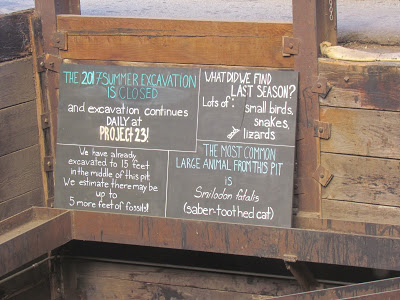 THE 2017 SUMMER EXCAVATION
IS CLOSED
and excavation continues
DAILY at
PROJECT 23!
WHAT DID WE FIND
LAST SEASON?
Lots of: small birds,
snakes,
lizards
We have already
excavated to 15 feet
in the middle of this pit.
We estimate there may be
up to
5 more feet of fossils!
THE MOST COMMON
LARGE ANIMAL FROM THIS PIT
is
Smilodon fatalis
(saber-toothed cat)